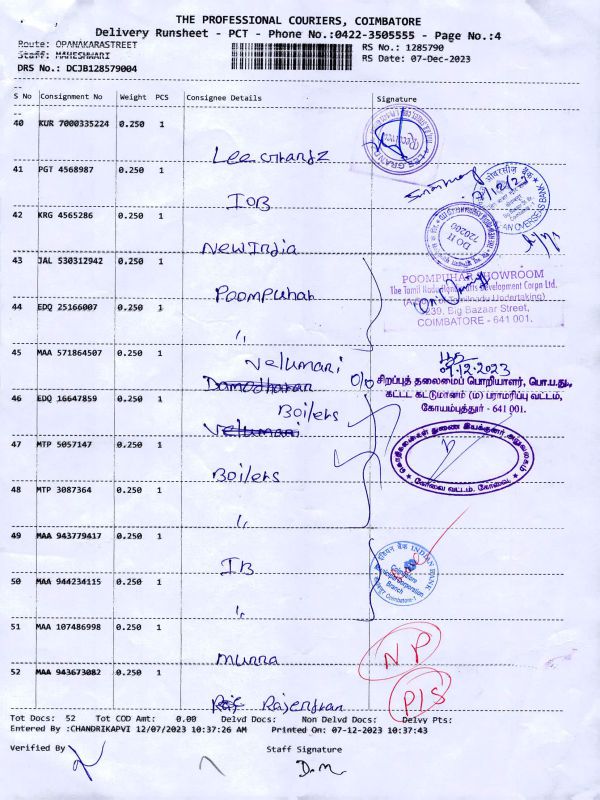 THE PROFESSIONAL COURIERS, COIMBATORE
Delivery Runsheet - PCT - Phone No.:0422-3505555 - Page No.:4
Route: OPANAKARASTREET
Staff: MAHESHWARI
DRS No.: DCJB128579004
RS No.: 1285790
RS Date: 07-Dec-2023
S No Consignment No Weight PCS Consignee Details Signature
40 KUR 7000335224 0.250 1
Lee Grandz
41 PGT 4568987 0.250 1
IOB
42 KRG 4565286 0.250 1
New India
DO II
720200
43 JAL 530312942 0.250 1
Poompuhar
POOMPUHAR SHOWROOM
The Tamil Nadu Handicrafts Development Corpn Ltd.
(A Govt. of Tamilnadu Undertaking)
1239, Big Bazaar Street,
COIMBATORE - 641 001.
44 EDQ 25166007 0.250 1
"
45 MAA 571864507 0.250 1
Velumari
Damodharan
07.12.2023
O/o சிறப்புத் தலைமைப் பொறியாளர், பொ.ப.து.,
கட்டட கட்டுமானம் (ம) பராமரிப்பு வட்டம்,
கோயம்புத்தூர் - 641 001.
46 EDQ 16647859 0.250 1
Boilers
Velumari
47 MTP 5057147 0.250 1
Boilers
கோவை வட்டம், கோவை.
48 MTP 3087364 0.250 1
"
49 MAA 943779417 0.250 1
IB
इंडियन बैंक INDIAN BANK
Coimbatore
Municipal Corporation
Branch
Coimbatore-1
50 MAA 944234115 0.250 1
"
51 MAA 107486998 0.250 1
Munna
NP
52 MAA 943673082 0.250 1
Rajendran
P/S
Tot Docs: 52 Tot COD Amt: 0.00 Delvd Docs: Non Delvd Docs: Delvy Pts:
Entered By :CHANDRIKAPVI 12/07/2023 10:37:26 AM Printed On: 07-12-2023 10:37:43
Verified By Staff Signature
D.M.